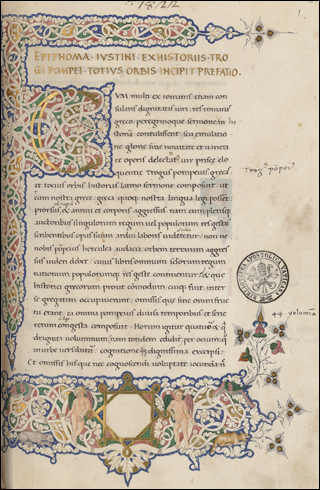 1
EPITHOMA · IVSTINI · EX HISTORIIS · TRO
GI POMPEI · TOTIVS ORBIS INCIPIT PREFATIO ·
VM multi ex romanis etiam con
sularis dignitatis uiri res romanas
greco peregrinoque sermone in hi
storiam contulissent: seu emulatione
glorie siue nouitate et uarieta
te operis delectatus uir prisce elo
quentie Trogus pompeius grecas
et totius orbis historias latino sermone composuit: ut
cum nostra grece: greca quoque nostra lingua legi possent
prorsus & animi et corporis aggressus: nam cum plerisque
auctoribus singulorum regum uel populorum res gestas
scribentibus opus suum ardui laboris uideretur: non ne
nobis pompeius herculea audacia orbem terrarum aggres
sus uideri debet: cuius libris omnium seculorum regum
nationum populorumque res geste continentur: & que
historici grecorum prout commodum cuique fuit inter
se gregatim occupauerunt: omissis que sine omni fruc
tu erant: ea omnia pompeius diuisa temporibus et serie
rerum congesta composuit: Horum igitur quatuor & q
draginta uoluminum: nam totidem edidit: per ocium q
in urbe uersabamur: cognitione queque dignissima excerpsi:
Et omissis his que nec cognoscendi uoluptate iocunda
Trog9 pōpeu9
44 volumia
BIBLIOTHECA APOSTOLICA VATICANA